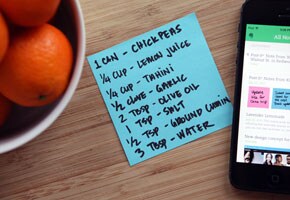 1 CAN - CHICKPEAS
1/4 CUP - LEMON JUICE
1/4 CUP - TAHINI
1/2 CLOVE - GARLIC
2 TBSP - OLIVE OIL
1 TSP - SALT
1/2 TSP - GROUND CUMIN
3 TBSP - WATER
All No